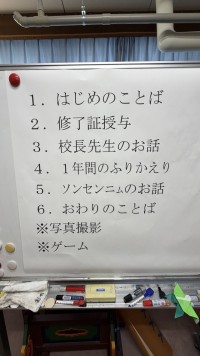 1．はじめのことば
2．修了証授与
3．校長先生のお話
4．1年間のふりかえり
5．ソンセンニムのお話
6．おわりのことば
※写真撮影
※ゲーム